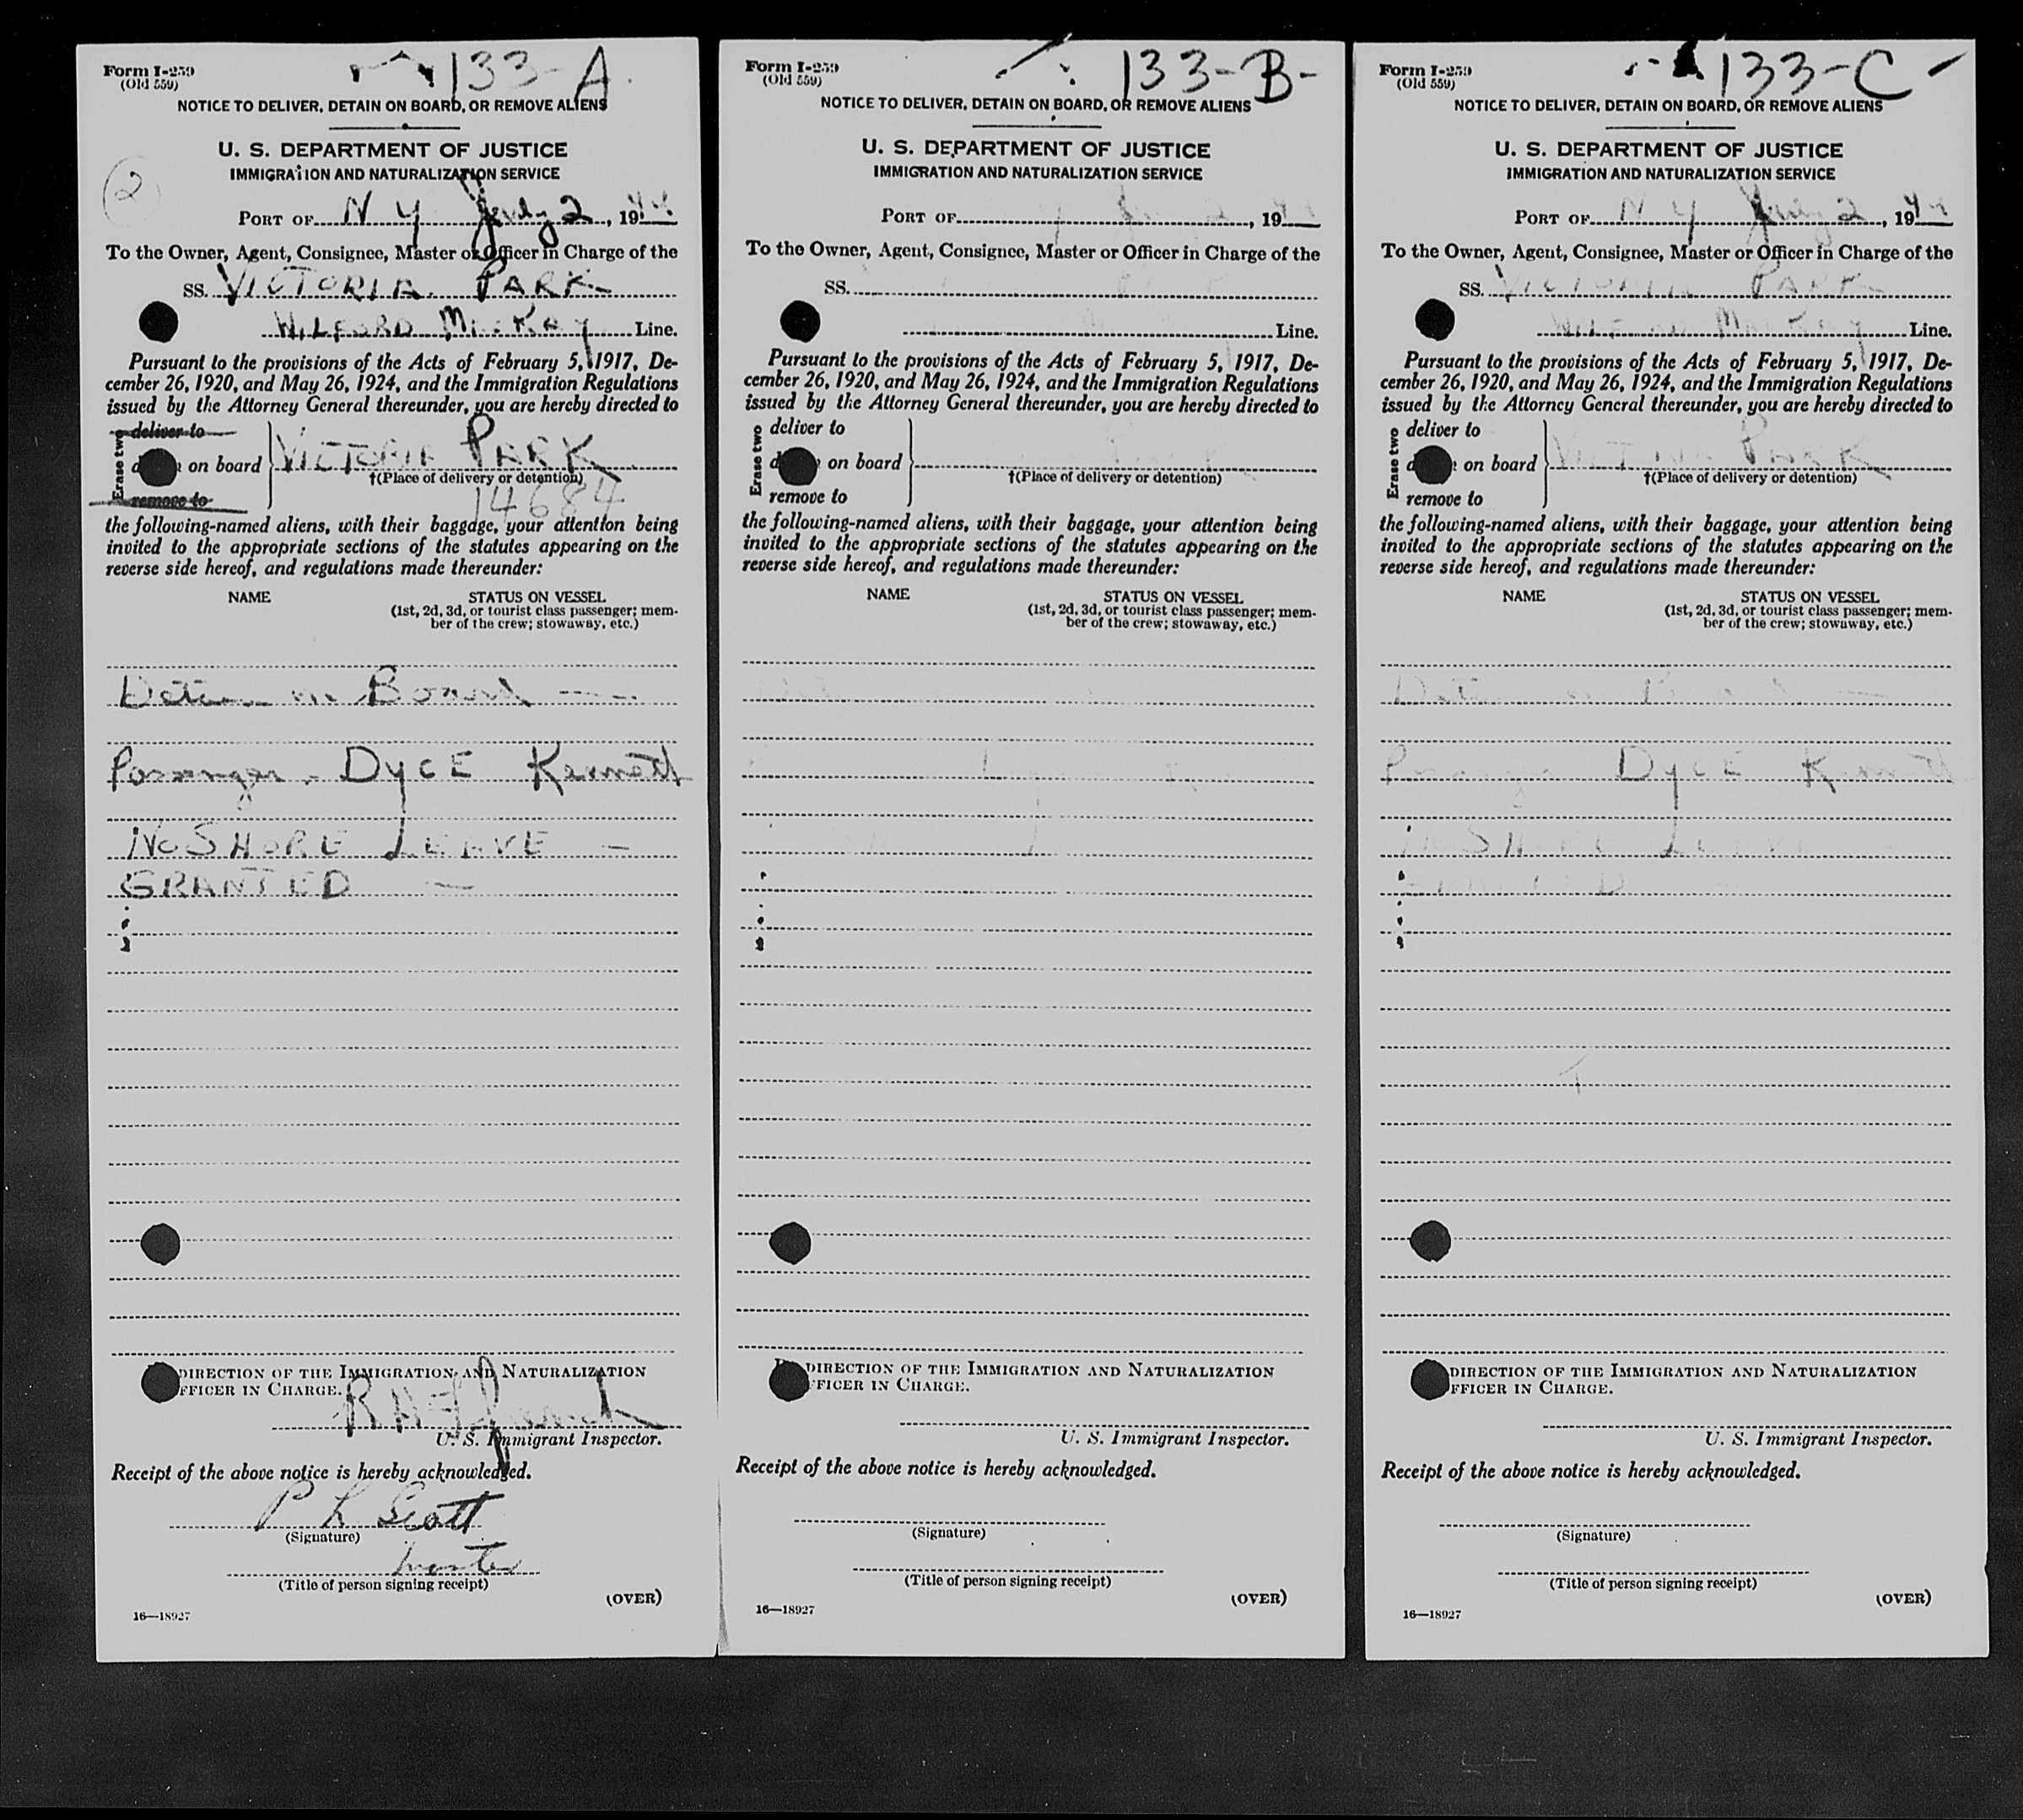 Form I-259
(Old 559)
133-A
NOTICE TO DELIVER, DETAIN ON BOARD, OR REMOVE ALIENS
U. S. DEPARTMENT OF JUSTICE
IMMIGRATION AND NATURALIZATION SERVICE
2
PORT OF N Y July 2, 1944
To the Owner, Agent, Consignee, Master or Officer in Charge of the
SS. VICTORIA PARK
WILFORD McKAY Line.
Pursuant to the provisions of the Acts of February 5, 1917, De-
cember 26, 1920, and May 26, 1924, and the Immigration Regulations
issued by the Attorney General thereunder, you are hereby directed to
Erase two
deliver to
on board VICTORIA PARK
†(Place of delivery or detention)
remove to
14684
the following-named aliens, with their baggage, your attention being
invited to the appropriate sections of the statutes appearing on the
reverse side hereof, and regulations made thereunder:
NAME STATUS ON VESSEL
(1st, 2d, 3d, or tourist class passenger; mem-
ber of the crew; stowaway, etc.)
Detain on Board
Passenger. DYCE Kenneth
NO SHORE LEAVE
GRANTED
DIRECTION OF THE IMMIGRATION AND NATURALIZATION
FFICER IN CHARGE.
U. S. Immigrant Inspector.
Receipt of the above notice is hereby acknowledged.
P L Scott
(Signature)
Master
(Title of person signing receipt)
(OVER)
16—18927
Form I-259
(Old 559)
133-B-
NOTICE TO DELIVER, DETAIN ON BOARD, OR REMOVE ALIENS
U. S. DEPARTMENT OF JUSTICE
IMMIGRATION AND NATURALIZATION SERVICE
PORT OF , 19
To the Owner, Agent, Consignee, Master or Officer in Charge of the
SS.
Line.
Pursuant to the provisions of the Acts of February 5, 1917, De-
cember 26, 1920, and May 26, 1924, and the Immigration Regulations
issued by the Attorney General thereunder, you are hereby directed to
Erase two
deliver to
on board
†(Place of delivery or detention)
remove to
the following-named aliens, with their baggage, your attention being
invited to the appropriate sections of the statutes appearing on the
reverse side hereof, and regulations made thereunder:
NAME STATUS ON VESSEL
(1st, 2d, 3d, or tourist class passenger; mem-
ber of the crew; stowaway, etc.)
DIRECTION OF THE IMMIGRATION AND NATURALIZATION
FFICER IN CHARGE.
U. S. Immigrant Inspector.
Receipt of the above notice is hereby acknowledged.
(Signature)
(Title of person signing receipt)
(OVER)
16—18927
Form I-259
(Old 559)
133-C
NOTICE TO DELIVER, DETAIN ON BOARD, OR REMOVE ALIENS
U. S. DEPARTMENT OF JUSTICE
IMMIGRATION AND NATURALIZATION SERVICE
PORT OF N Y July 2, 1944
To the Owner, Agent, Consignee, Master or Officer in Charge of the
SS. VICTORIA PARK
Line.
Pursuant to the provisions of the Acts of February 5, 1917, De-
cember 26, 1920, and May 26, 1924, and the Immigration Regulations
issued by the Attorney General thereunder, you are hereby directed to
Erase two
deliver to
on board VICTORIA PARK
†(Place of delivery or detention)
remove to
the following-named aliens, with their baggage, your attention being
invited to the appropriate sections of the statutes appearing on the
reverse side hereof, and regulations made thereunder:
NAME STATUS ON VESSEL
(1st, 2d, 3d, or tourist class passenger; mem-
ber of the crew; stowaway, etc.)
DYCE Kenneth
SHORE LEAVE
DIRECTION OF THE IMMIGRATION AND NATURALIZATION
FFICER IN CHARGE.
U. S. Immigrant Inspector.
Receipt of the above notice is hereby acknowledged.
(Signature)
(Title of person signing receipt)
(OVER)
16—18927